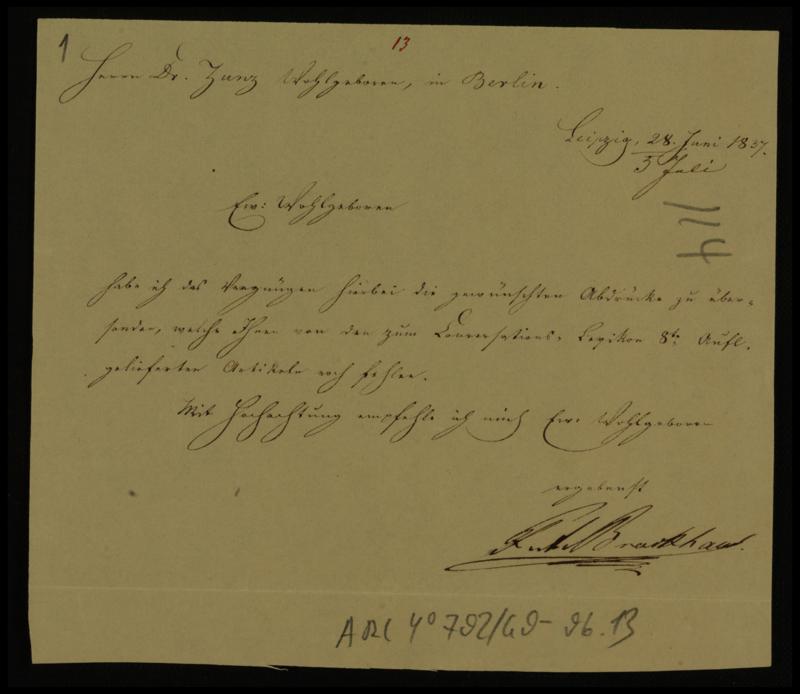 1
13
Herrn Dr. Zunz Wohlgeboren, in Berlin.
Leipzig, 28. Juni 1837.
5 Juli
114
Ew: Wohlgeboren
habe ich das Vergnügen hierbei die gewünschten Abdrücke zu über-
senden, welche Ihnen von den zum Conversations-Lexikon 8te Aufl.
gelieferten Artikeln noch fehlen.
Mit Hochachtung empfehle ich mich Ew. Wohlgeboren
ergebenst
Brockhaus.
ARC 4° 792/G9-96.13